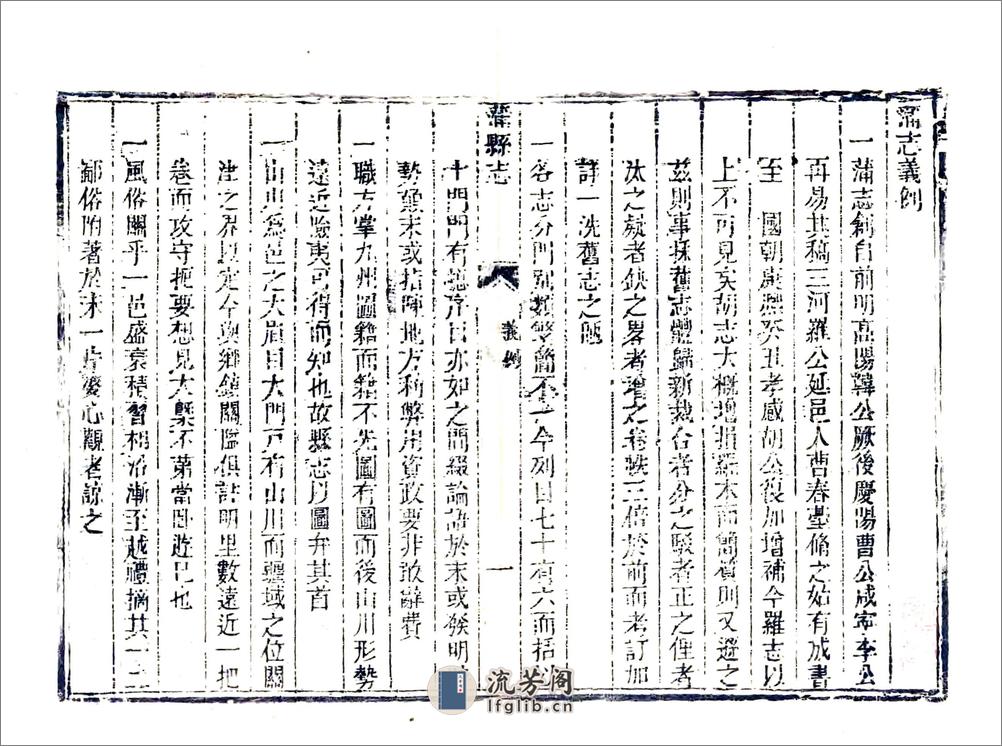 蒲志義例
一蒲志創自前明高陽韓公厥後慶陽曹公咸寧李公
再易其稿三河羅公延邑人曹春臺脩之始有成書
至　國朝康熙癸丑孝感胡公復加增補今羅志以
上不可見矣胡志大概增損羅本而簡質則又遜之
茲則事採舊志體歸新裁合者分之駁者正之俚者
汰之疑者缺之畧者增之卷帙三倍於前而考訂加
詳一洗舊志之陋
一各志分門別類繁簡不一今列目七十有六而括以
蒲縣志
義例
一
十門門有總序目亦如之間綴論語於末或發明
數顛末或指陳地方利弊用資政要非敢辭費
一職方掌九州圖籍而籍不先圖有圖而後山川形勢
遠近險夷可得而知也故縣志以圖弁其首
一山川爲邑之大眉目大門戸有山川而疆域之位關
津之界以定今與鄉鎮關隘俱註明里數遠近一把
卷而攻守扼要想見大槩不第當卧遊已也
一風俗關乎一邑盛衰積習相沿漸至越禮摘其一二
鄙俗附著於末一片婆心觀者諒之
流芳阁
lfglib.cn